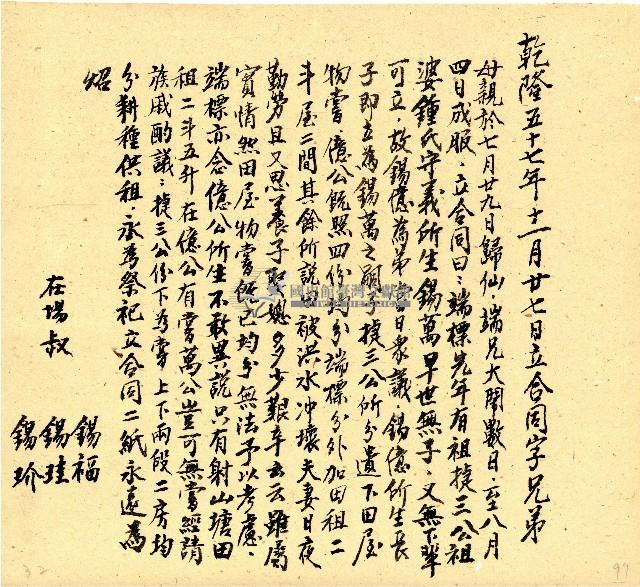 乾隆五十七年十一月廿七日立合同字兄弟
母親於七月廿九日歸仙、端兄大鬧數日、至八月
四日成服、立合同曰、端標先年有祖捷三公祖
婆鍾氏守義所生錫萬早世無子、又無下輩
可立、故錫億為弟當日衆議、錫億所生長
子即立為錫萬之嗣子捷三公所分遺下田屋
物嘗億公既照四份均分端標分外加田租二
斗屋二間其餘所說田被洪水冲壞夫妻日夜
勤勞且又思養子聖媳多少艱辛云云雖屬
實情然田屋物嘗既已均分無法予以考慮、
端標亦念億公所生不敢異說只有射山塘田
租二斗五升在億公有嘗萬公豈可無嘗經請
族戚酌議：捷三公份下為嘗上下兩段二房均
分耕種供租、永為祭祀立合同二紙永遠為
炤
在場叔
錫福
錫珪
錫玠
國史館臺灣文獻館
32
97